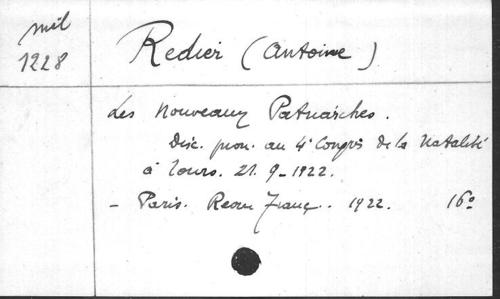 mél
1228
Redier (Antoine)
Les Nouveaux Patriarches.
Disc. pron. au 4e Congrès de la Natalité
à Tours. 21. 9 - 1922.
- Paris. Revue Franç.. 1922. 16o